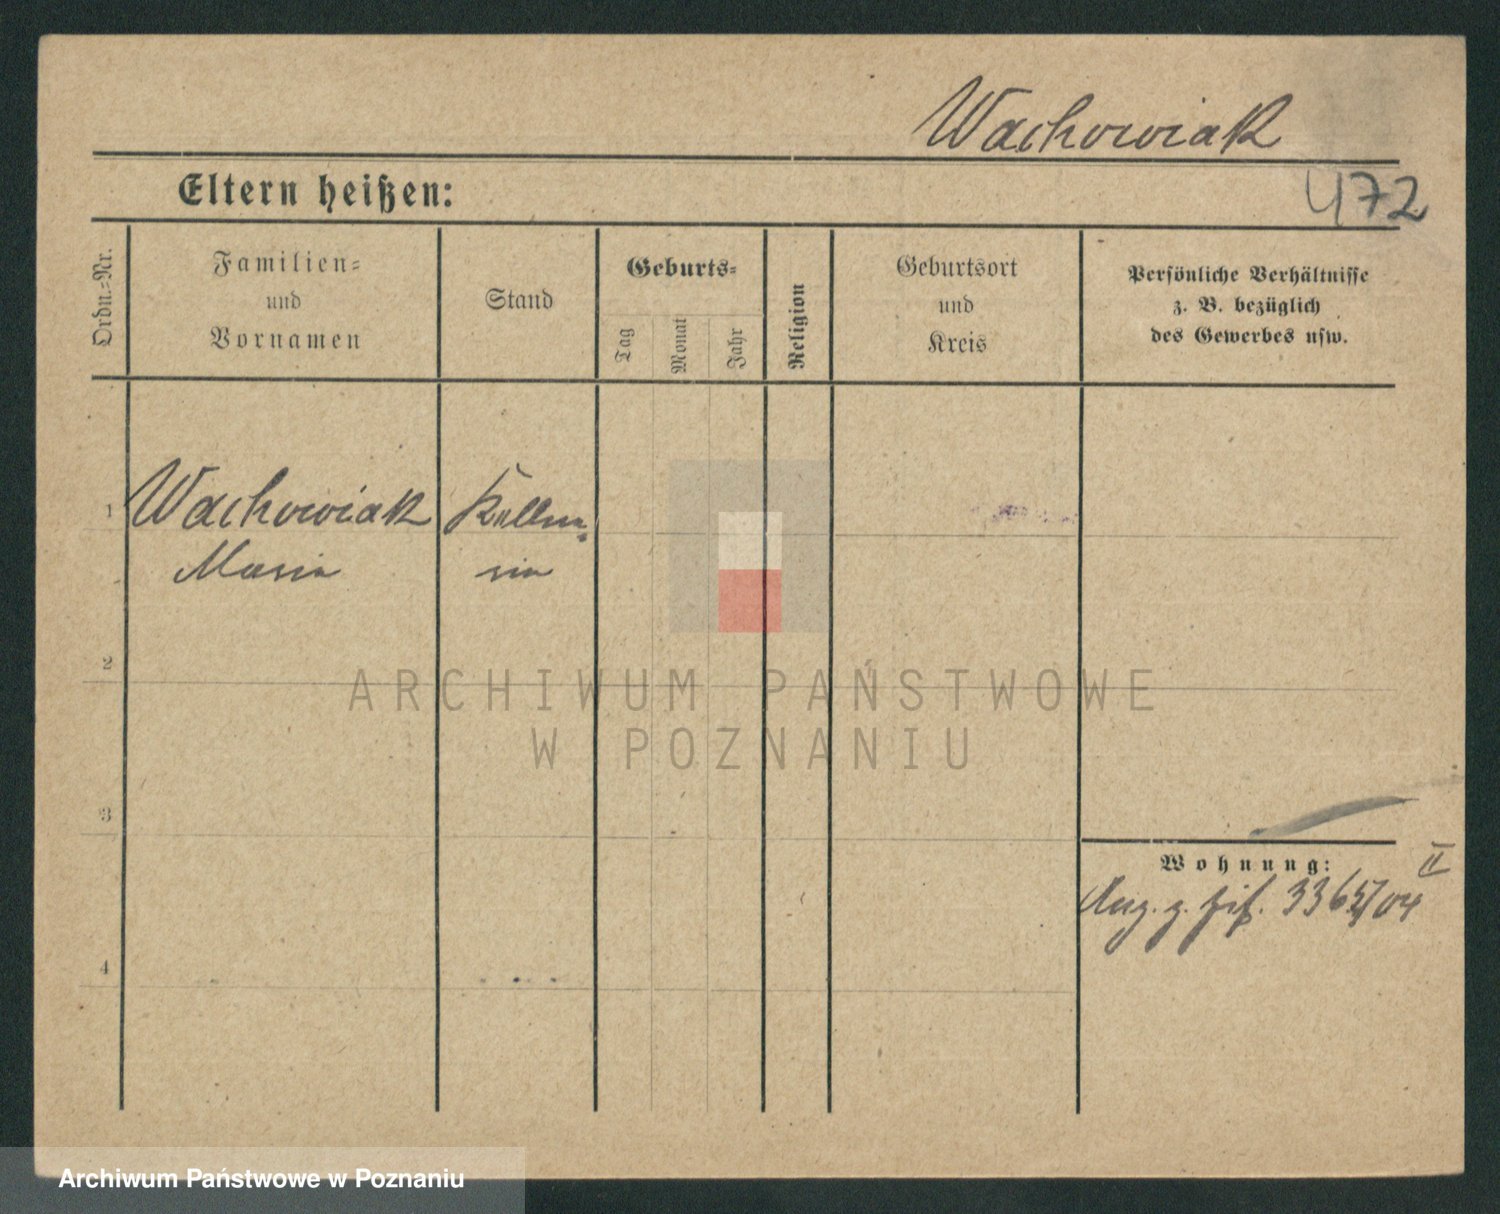 Wachowiak
Eltern heißen:
472
Ordn.=Nr.
Familien=
und
Vornamen
Stand
Geburts=
Tag
Monat
Jahr
Religion
Geburtsort
und
Kreis
Persönliche Verhältnisse
z. B. bezüglich
des Gewerbes usw.
1
Wachowiak
Kellne
Maria
rin
2
ARCHIWUM PAŃSTWOWE
W POZNANIU
3
Wohnung:
II
4
Archiwum Państwowe w Poznaniu